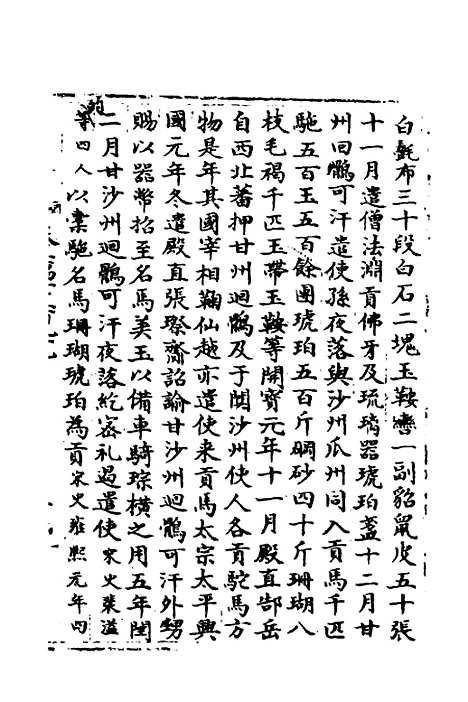 白㲲布三十段白石二塊玉鞍轡一副貂鼠皮五十張
十一月遣僧法淵貢佛牙及琉璃器琥珀盞十二月甘
州回鶻可汗遣使孫夜落與沙州瓜州同入貢馬千匹
駞五百玉五百餘團琥珀五百斤硇砂四十斤珊瑚八
枝毛褐千匹玉帶玉鞍等開寶元年十一月殿直郜岳
自西北蕃押甘州迴鶻及于闐沙州使人各貢駝馬方
物是年其國宰相鞠仙越亦遣使来貢馬太宗太平興
國元年冬遣殿直張璨齎詔諭甘沙州迴鶻可汗外甥
賜以器幣招至名馬美玉以備車騎琮橫之用五年閏
二月甘沙州迴鶻可汗夜落紇宻礼遏遣使宋史裴溢
等四人以橐駞名馬珊瑚琥珀為貢宋史雍熙元年四